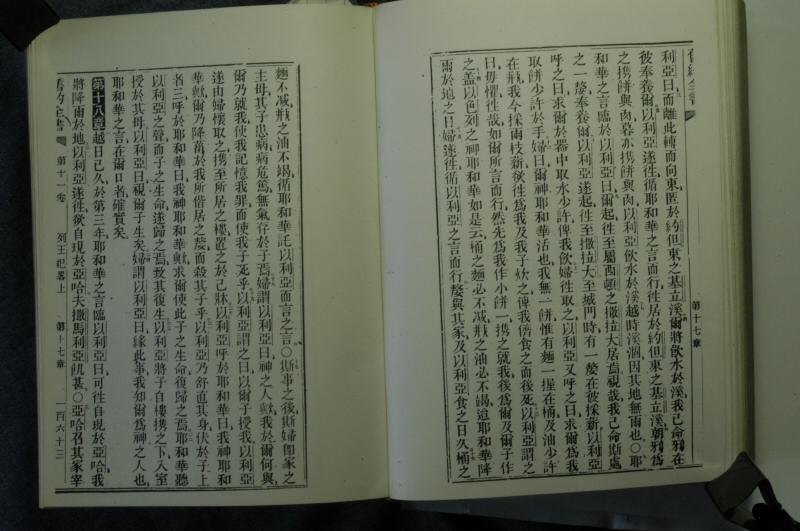 舊約全書
第十七章
利亞曰而離此轉而向東匿於約但東之基立溪爾將飲水於溪我已命鴉在
彼奉養爾以利亞遂往循耶和華之言而行往居於約但東之基立溪朝鴉爲
之携餅與肉暮亦携餅與肉以利亞飲水於溪越時溪涸因其地無雨也○耶
和華之言臨於以利亞曰爾起往至屬西頓之撒拉大居焉視哉我已命斯處
之一嫠奉養爾以利亞遂起往至撒拉大至城門時有一嫠在彼採薪以利亞
呼之曰求爾於器中取水少許俾我飲婦往取之以利亞又呼之曰求爾爲我
取餅少許於手婦曰爾神耶和華活也我無一餅惟有麵一握在桶及油少許
在瓶我今採兩枝薪欲往爲我及我子炊之俾我儕食之而後死以利亞謂之
曰毋懼往哉如爾所言而行然先爲我作小餅一携之就我後爲爾及爾子作
之蓋以色列之神耶和華如是云桶之麵必不減瓶之油必不竭迨耶和華降
雨於地之日婦遂往循以利亞之言而行嫠與其家及以利亞食之日久桶之
麵不減瓶之油不竭循耶和華託以利亞而言之言○斯事之後斯婦卽家之
主母其子患病病危篤無氣存於子焉婦謂以利亞曰神之人歟我於爾何與
爾乃就我使我記憶我罪而使我子死乎以利亞謂之曰以爾子授我以利亞
遂由婦懷取之携至所居之樓置之於己牀以利亞呼於耶和華曰我神耶和
華歟爾乃降菑於我所偕居之嫠而殺其子乎以利亞乃舒直其身伏於子上
者三呼於耶和華曰我神耶和華歟求爾使此子之生命復歸之焉耶和華聽
以利亞之聲而子之生命遂歸之焉致其復生以利亞將子自樓携之下入室
授於其母以利亞曰視爾子生矣婦謂以利亞曰緣此事我知爾爲神之人也
耶和華之言在爾口者確實矣
第十八章越日已久於第三年耶和華之言臨以利亞曰可往自現於亞哈我
將降雨於地以利亞遂往欲自現於亞哈夫撒馬利亞飢甚○亞哈召其家宰
舊約全書 第十一卷 列王紀畧上 第十七章 一百六十三